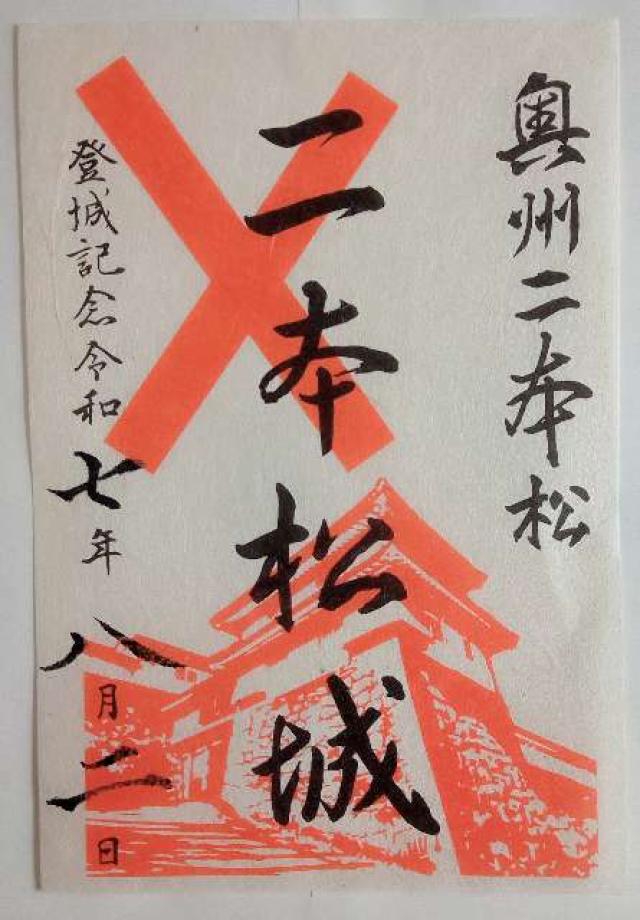 奥州二本松
二本松城
登城記念令和七年八月二日